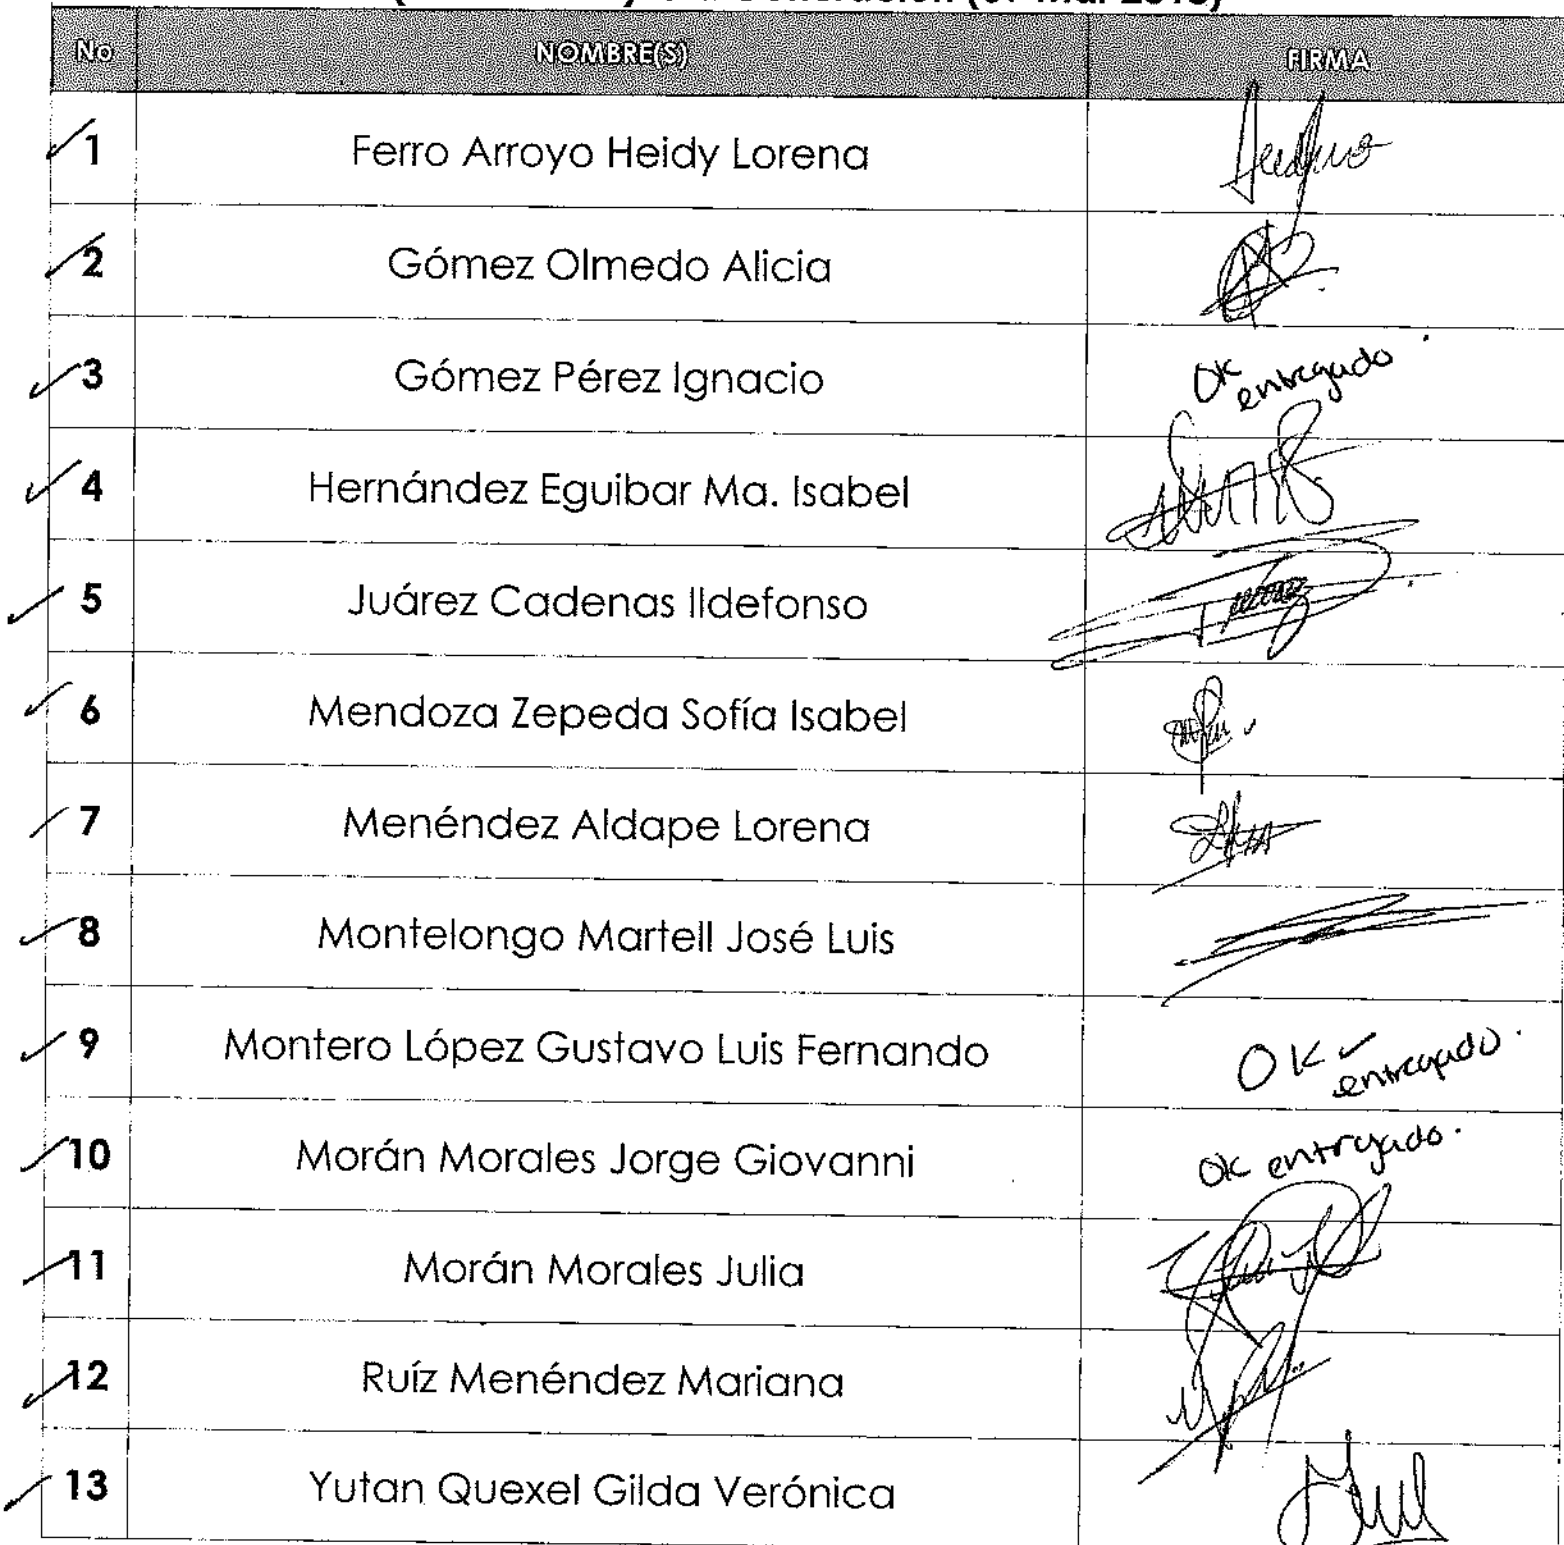 No NOMBRE(S) FIRMA
1 Ferro Arroyo Heidy Lorena
2 Gómez Olmedo Alicia
3 Gómez Pérez Ignacio OK entregado.
4 Hernández Eguibar Ma. Isabel
5 Juárez Cadenas Ildefonso
6 Mendoza Zepeda Sofía Isabel
7 Menéndez Aldape Lorena
8 Montelongo Martell José Luis
9 Montero López Gustavo Luis Fernando OK ✓ entregado.
10 Morán Morales Jorge Giovanni OK entregado.
11 Morán Morales Julia
12 Ruíz Menéndez Mariana
13 Yutan Quexel Gilda Verónica